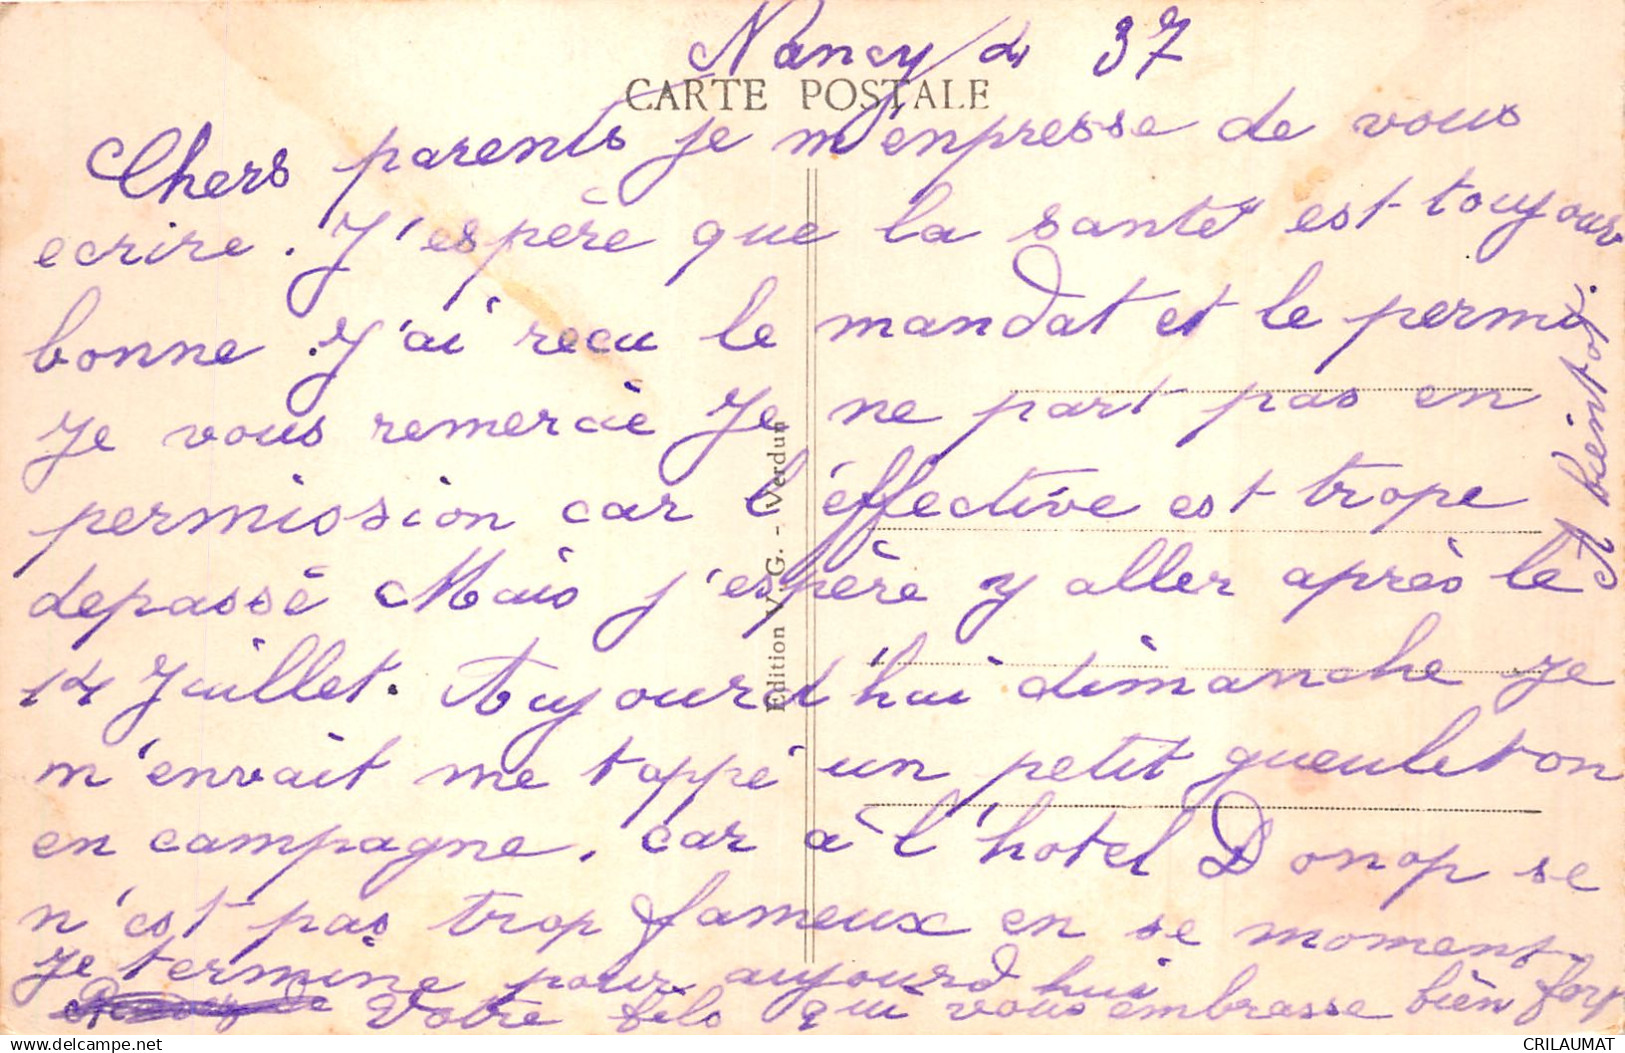 Nancy 37
CARTE POSTALE
Chers parents je m'enpresse de vous
ecrire. J'espère que la santé est toujours
bonne. J'ai reçu le mandat et le permi.
Je vous remercie Je ne part pas en
permission car l'éffective est trope
depassé Mais j'espère y aller après le
14 Juillet. Aujourd'hui dimanche je
m'envait me tappé un petit gueuleton
en campagne, car à l'hotel Donop se
n'est pas trop fameux en se moment.
Je termine pour aujourd'hui
Votre fils qui vous embrasse bien fort
A bientot
Edition V. G. - Verdun
CRILAUMAT